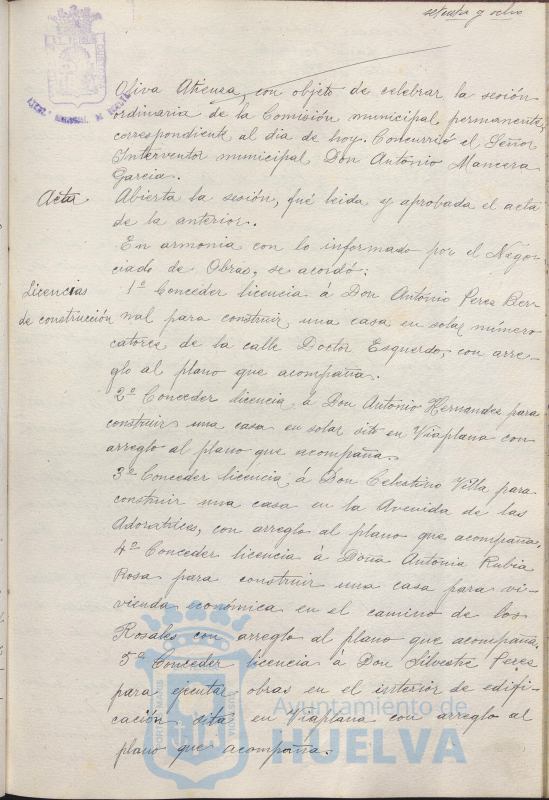 setenta y ocho
Oliva Atienza, con objeto de celebrar la sesión
ordinaria de la Comisión municipal permanente,
correspondiente al dia de hoy. Concurrió el Señor
Interventor municipal Don Antonio Mancera
Garcia.
Acta
Abierta la sesión, fué leida y aprobada el acta
de la anterior.
En armonia con lo informado por el Nego-
ciado de Obras, se acordó:
Licencias
de construcción
1º Conceder licencia á Don Antonio Peres Ber-
nal para construir una casa en solar número
catorce de la calle Doctor Esquerdo, con arre-
glo al plano que acompaña.
2º Conceder licencia á Don Antonio Hernandes para
construir una casa en solar sito en Viaplana con
arreglo al plano que acompaña.
3º Conceder licencia á Don Celestino Villa para
construir una casa en la Avenida de las
Adoratrices, con arreglo al plano que acompaña.
4º Conceder licencia á Doña Antonia Rubia
Rosa para construir una casa para vi-
vienda económica en el camino de los
Rosales con arreglo al plano que acompaña.
5º Conceder licencia á Don Silvestre Peres
para ejecutar obras en el interior de edifi-
cación sita en Viaplana con arreglo al
plano que acompaña.
Ayuntamiento de
HUELVA